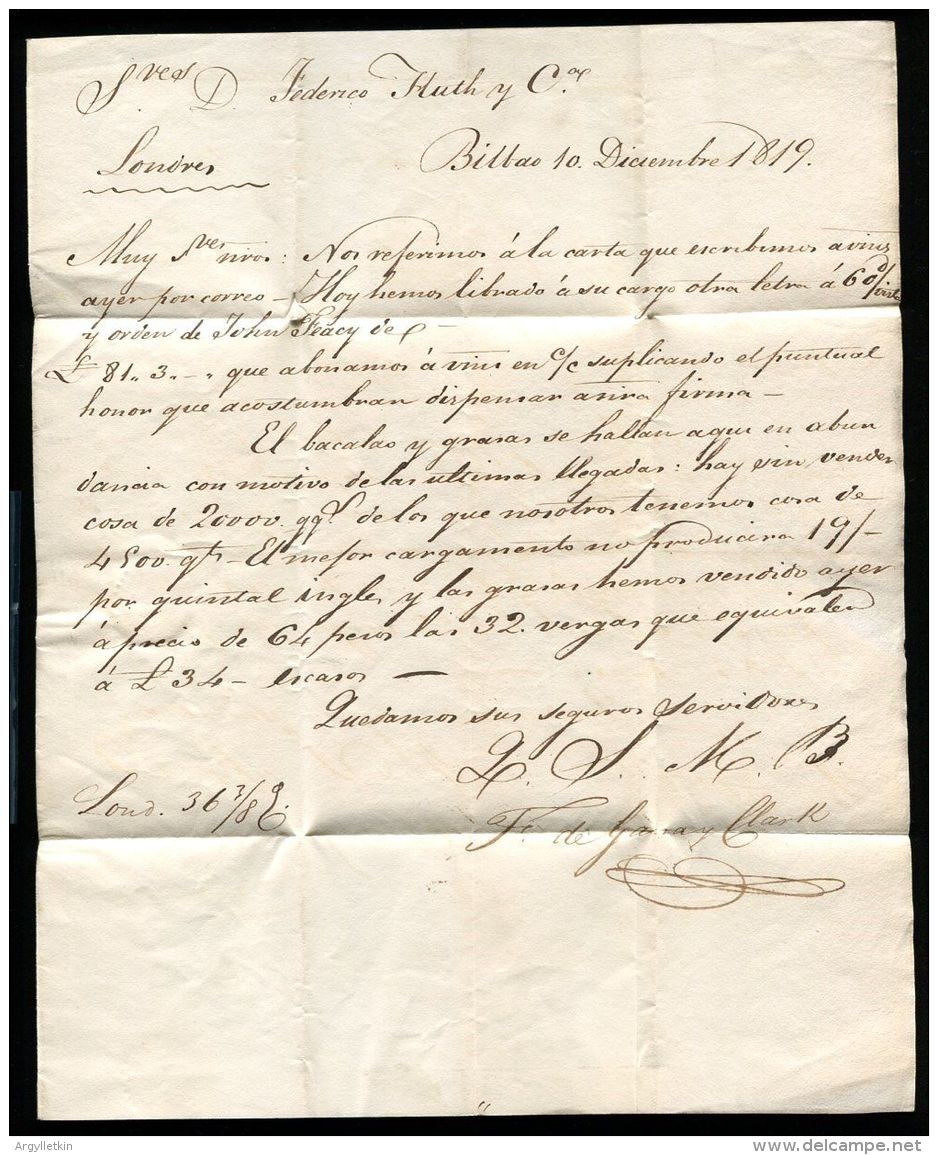 S.res D. Federico Huth y C.a
Londres
Bilbao 10. Diciembre 1819.
Muy Sres nros: Nos referimos á la carta que escribimos a vms
ayer por correo – Hoy hemos librado á su cargo otra letra á 60 d/vista
y orden de John de –
£ 81.. 3.. –.. que abonamos á vms en c/c suplicando el puntual
honor que acostumbran dispensar a nra firma –
El bacalao y grasas se hallan aqui en abun
dancia con motivo de las ultimas llegadas: hay sin vender
cosa de 20000. qq.s de los que nosotros tenemos cosa de
4500. qts – El mejor cargamento no producira 19/–
por quintal ingles y las grasas hemos vendido ayer
á precio de 64 pesos las 32. vergas que equivalen
á £ 34 – escasos —
Quedamos sus seguros servidores
Q. S. M. B.
Lond. 36 3/8
F. de Clark
Argylletkin
www.delcampe.net